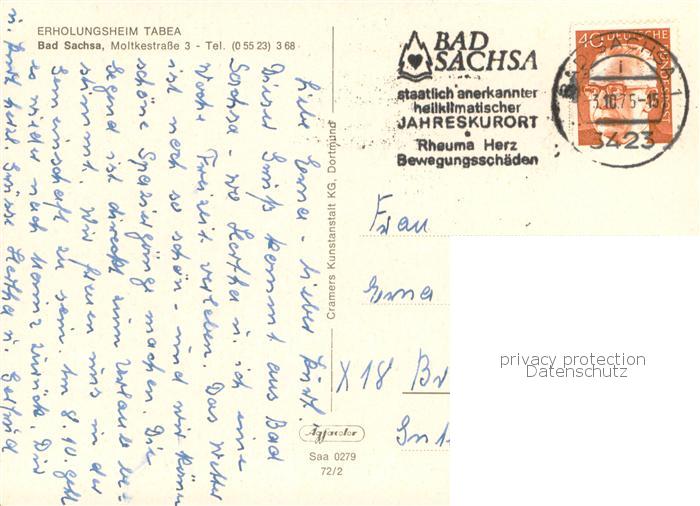 ERHOLUNGSHEIM TABEA
Bad Sachsa, Moltkestraße 3 - Tel. (0 55 23) 3 68
BAD
SACHSA
staatlich anerkannter
heilklimatischer
JAHRESKURORT
Rheuma Herz
Bewegungsschäden
40 DEUTSCHE BUNDESPOST
BAD SACHSA 1
i
3.10.75-15
3423
Liebe Erna - lieber Kurt.
Dieser Gruß kommt aus Bad
Sachsa - wo Hertha u. ich eine
Woche Freizeit verleben. Das Wetter
ist noch so schön - und wir können
schöne Spaziergänge machen. Die
Gegend ist direkt zum Urlaub be-
stimmt. Wir freuen uns in der
Gemeinschaft zu sein. Am 8.10. geht
es wieder nach zurück. Dir
u. Kurt herzl. Grüsse Hertha u.
Cramers Kunstanstalt KG, Dortmund
Frau
Erna
X18 Br
Agfacolor
Saa 0279
72/2
privacy protection
Datenschutz